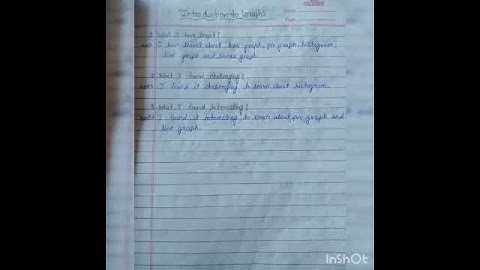 Introduction to Graphs
Date
Page
1 What I have learnt?
Ans I have learnt about bar graph, pie graph, histogram,
line graph and linear graph.
2 What I found challenging?
Ans I found it challenging to learn about histogram.
3 What I found interesting?
Ans I found it interesting to learn about pie graph and
line graph.
InShOt